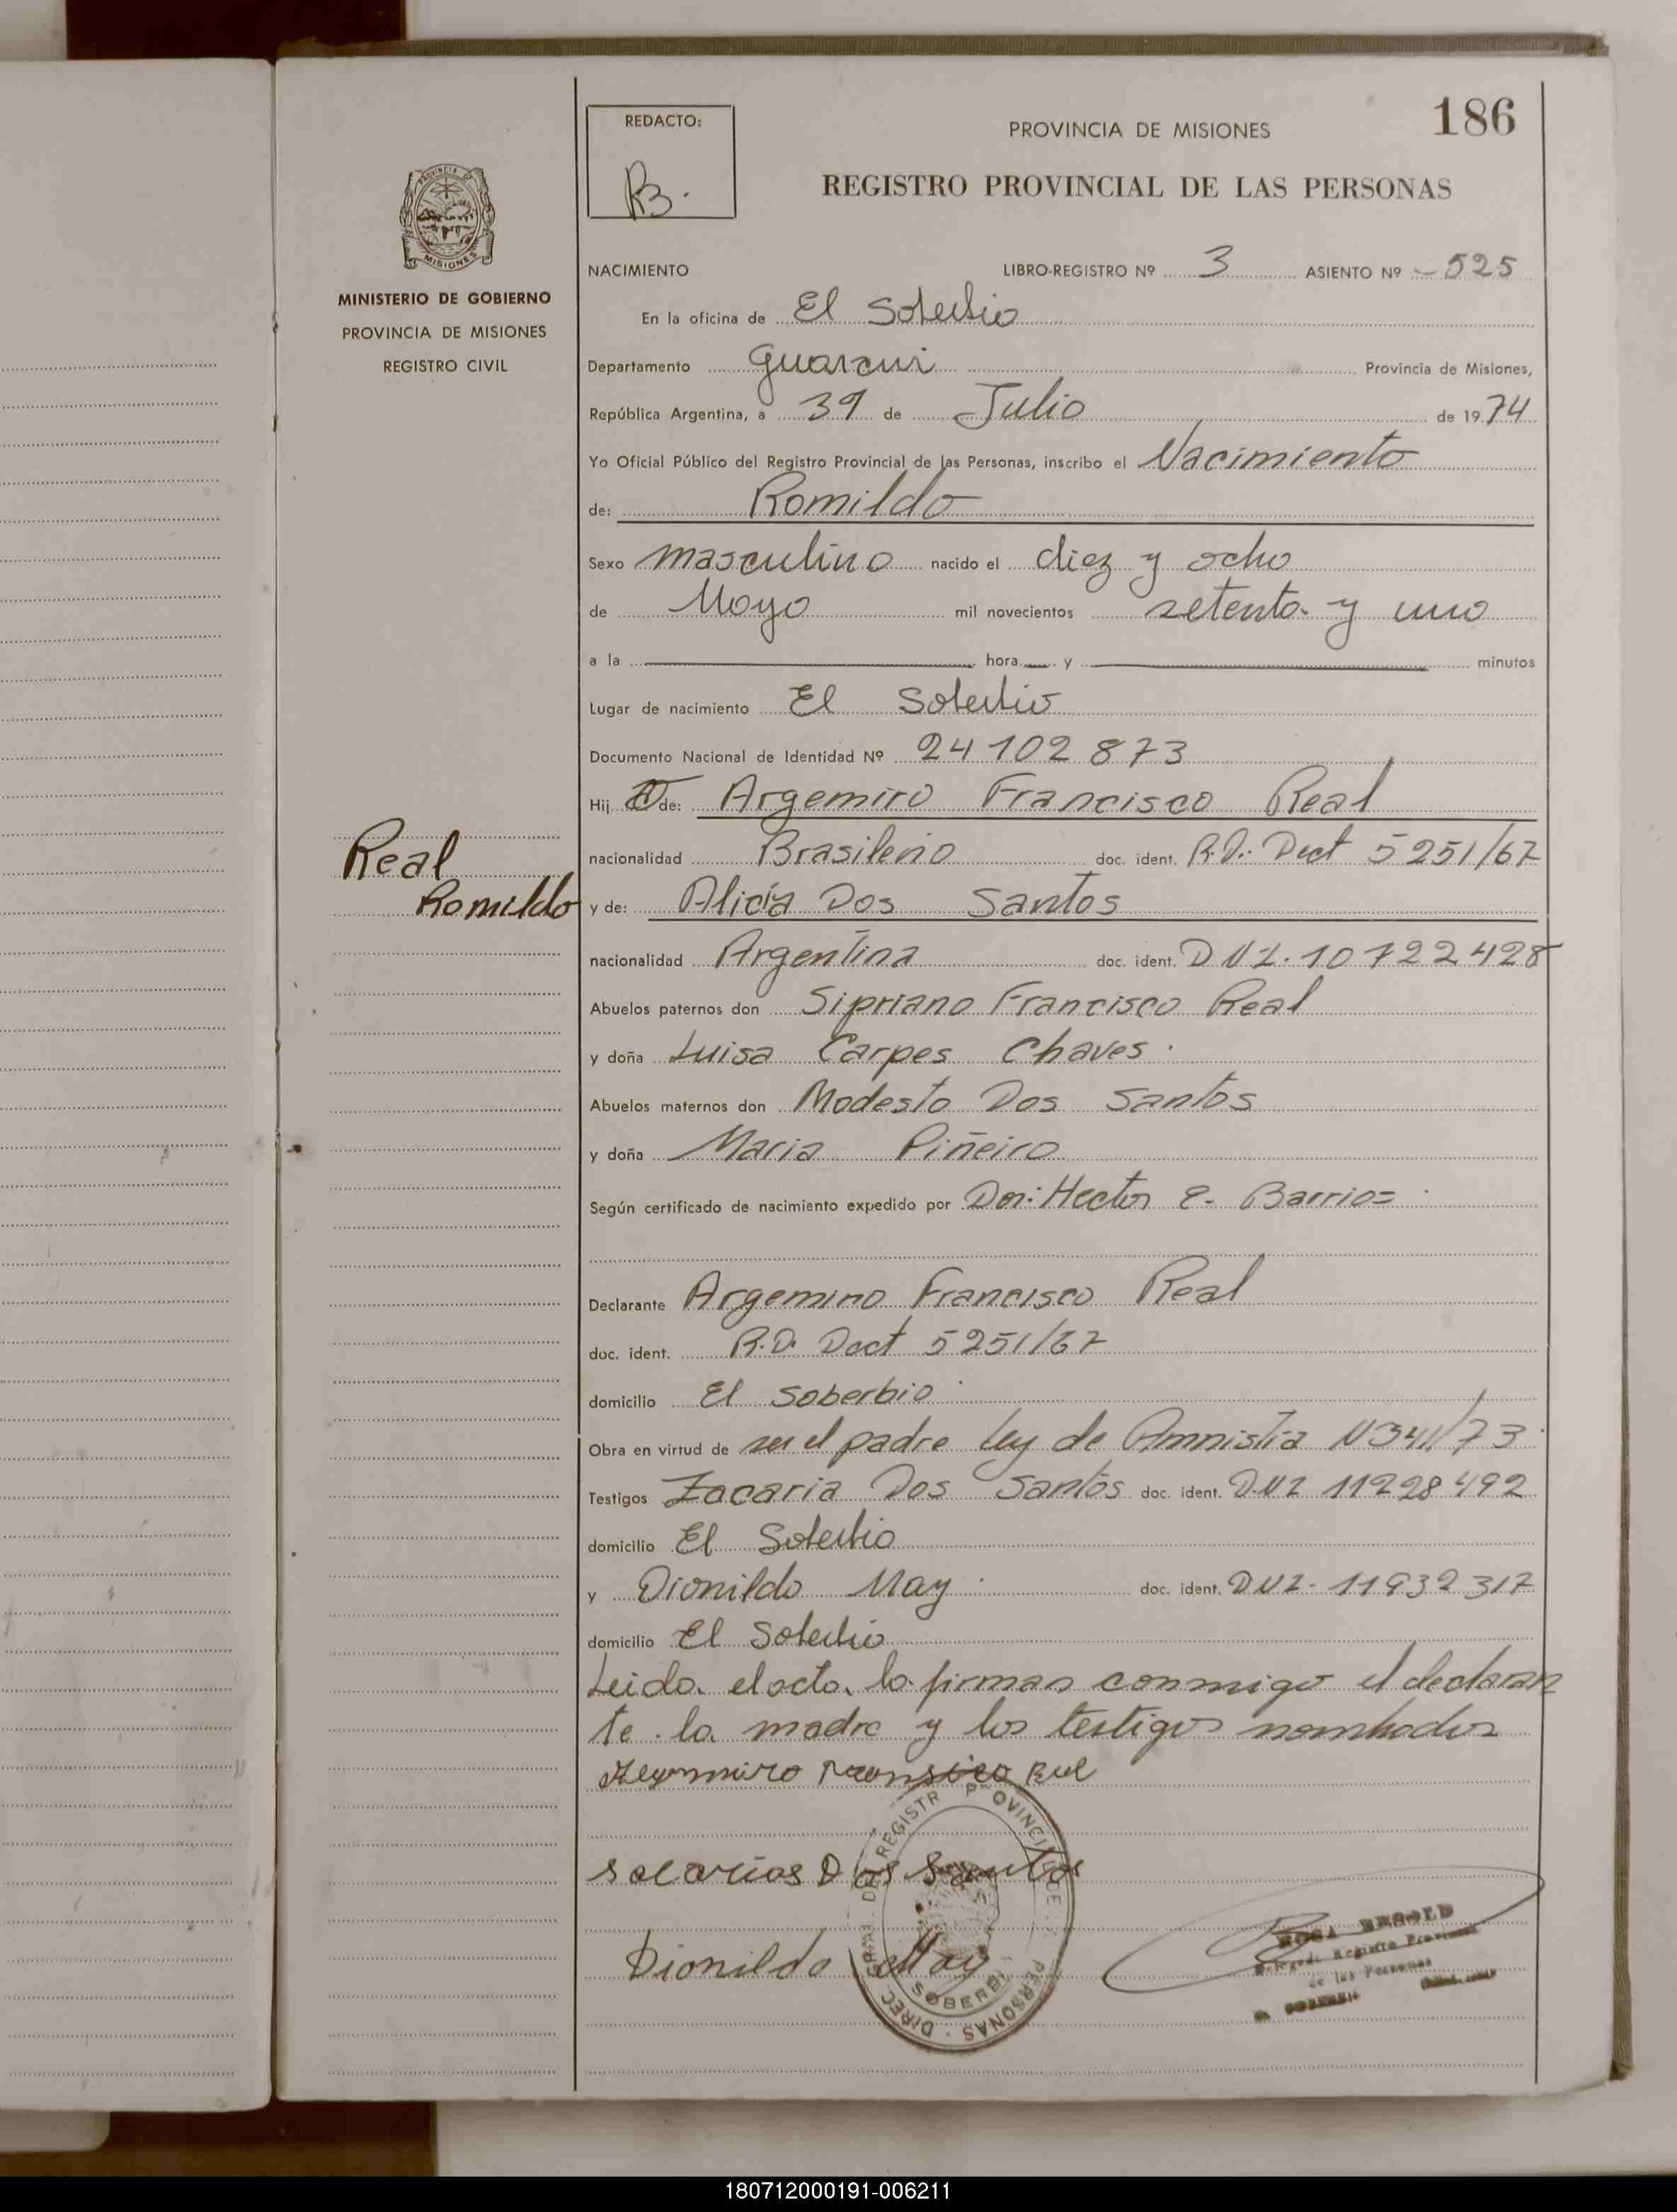 186
REDACTO:
PROVINCIA DE MISIONES
REGISTRO PROVINCIAL DE LAS PERSONAS
MISIONES
MINISTERIO DE GOBIERNO
PROVINCIA DE MISIONES
REGISTRO CIVIL
NACIMIENTO LIBRO-REGISTRO Nº 3 ASIENTO Nº 525
En la oficina de El Soberbio
Departamento Guarani Provincia de Misiones,
República Argentina, a 31 de Julio de 1974
Yo Oficial Público del Registro Provincial de las Personas, inscribo el Nacimiento
de: Romildo
Sexo masculino nacido el diez y ocho
de Mayo mil novecientos setenta y uno
a la hora y minutos
Lugar de nacimiento El Soberbio
Documento Nacional de Identidad Nº 24 102 873
Hij o de: Argemiro Francisco Real
Real
Romildo
nacionalidad Brasileño doc. ident. R.D. Dect 5251/67
y de: Alicia Dos Santos
nacionalidad Argentina doc. ident. DNI. 10 722 428
Abuelos paternos don Sipriano Francisco Real
y doña Luisa Carpes Chaves.
Abuelos maternos don Modesto Dos Santos
y doña Maria Piñeiro
Según certificado de nacimiento expedido por Don: Hector E. Barrios
Declarante Argemiro Francisco Real
doc. ident. R.D. Dect 5251/67
domicilio El Soberbio
Obra en virtud de ser el padre Ley de Amnistia N341/73
Testigos Zacaria Dos Santos doc. ident. DNI 11228492
domicilio El Soberbio
y Dionildo May doc. ident. DNI. 11932317
domicilio El Soberbio
Leida el acta la firman conmigo el declaran
te la madre y los testigos nombrados
Dos Santos
Dionildo May
SOBERBI
180712000191-006211